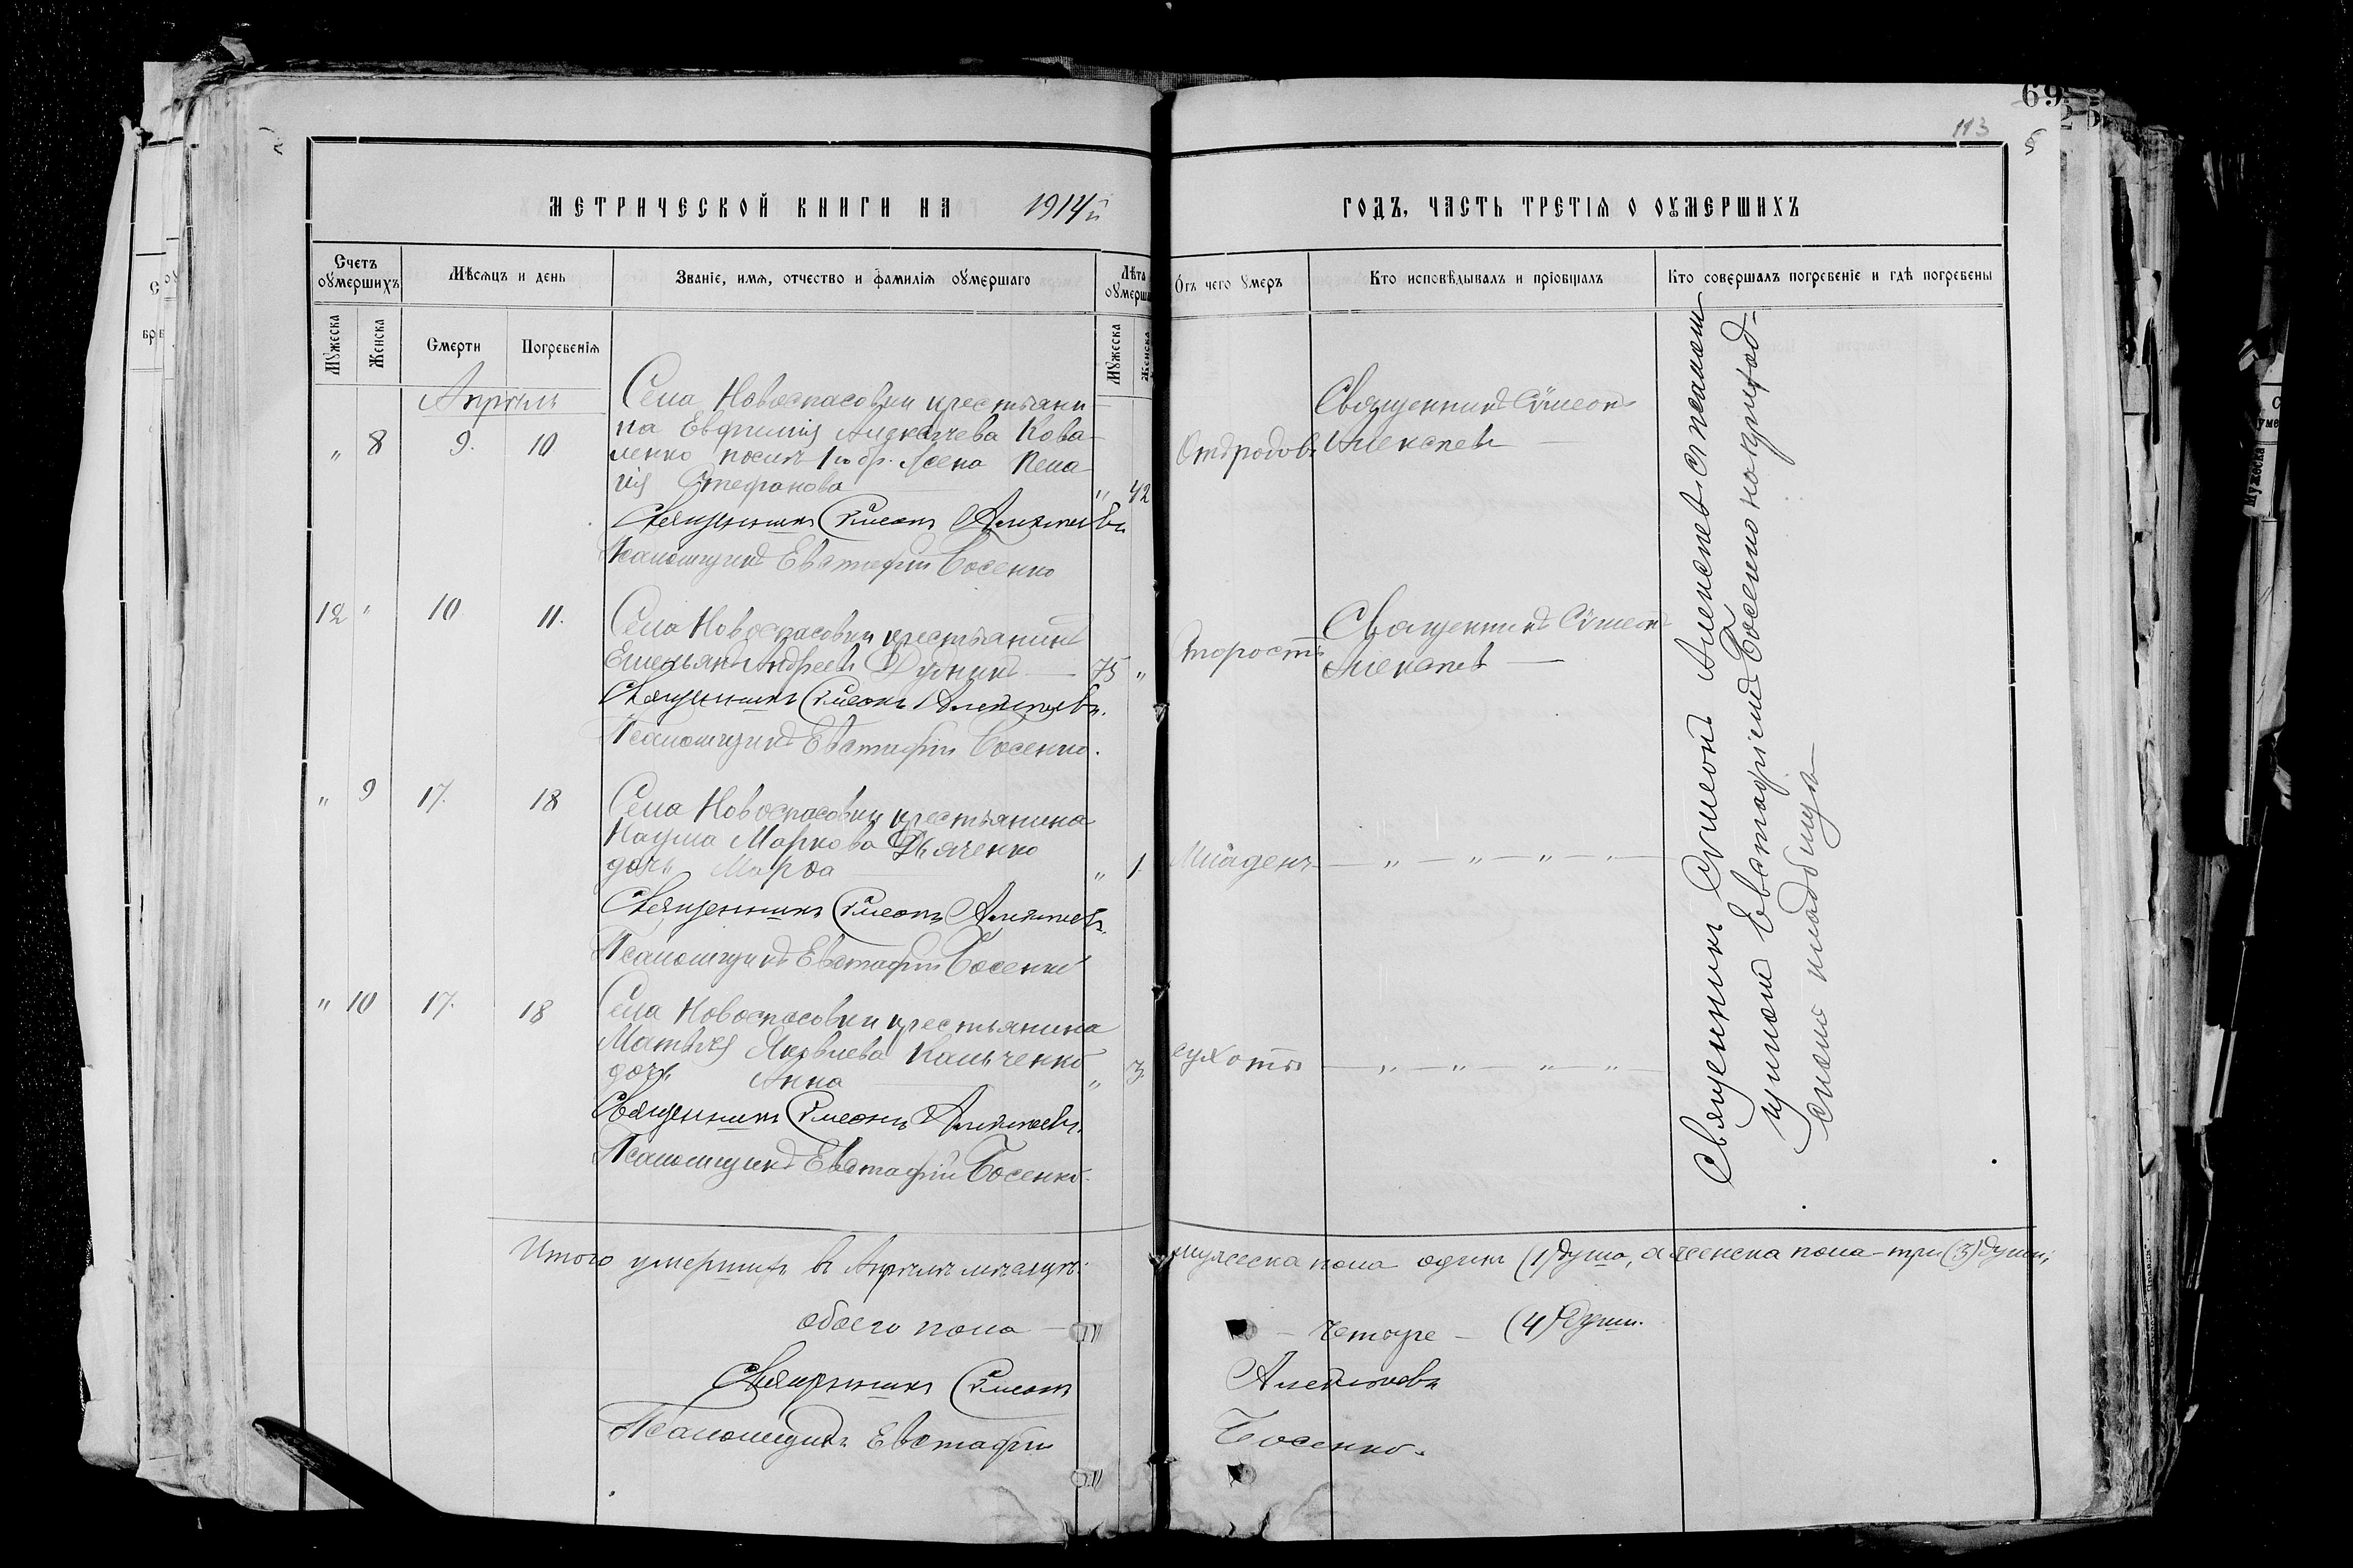 69
113
МЕТРИЧЕСКОЙ КНИГИ НА 1914й ГОДЪ, ЧАСТЬ ТРЕТІЯ О ОУМЕРШИХЪ
Счетъ оумершихъ
Мѣсяцъ и день
Званіе, имя, отчество и фамилія оумершаго
Лѣта оумерша
Отъ чего умеръ
Кто исповѣдывалъ и пріобщалъ
Кто совершалъ погребеніе и гдѣ погребены
Мужеска
Женска
Смерти
Погребенія
Мужеска
Женска
Апрѣль
" 8 9. 10
Села Новоспасовки крестьяни
на Евфимія Алексѣева Кова-
ленко послѣ 1го бр. жена Пела
гія Стефанова " 42
Отъ родовъ
Священникъ Сѵмеонъ
Алексѣевъ
Священникъ Сѵмеонъ Алексѣевъ
Псаломщикъ Евстафій Босенко
12 " 10 11.
Села Новоспасовки крестьянинъ
Емельянъ Андреевъ Дудникъ 75 "
Старость
Священникъ Сѵмеонъ
Алексѣевъ
Священникъ Сѵмеонъ Алексѣевъ.
Псаломщикъ Евстафій Босенко.
" 9 17. 18
Села Новоспасовки крестьянина
Наума Маркова Дьяченко
дочь Марѳа " 1.
Младенч. — " — " — " — " —
Священникъ Сѵмеонъ Алексѣевъ.
Псаломщикъ Евстафій Босенко
" 10 17. 18
Села Новоспасовки крестьянина
Матвѣя Яковлева Кальченко
дочь Анна " 3.
сухоты — " — " — " — " —
Священникъ Сѵмеонъ Алексѣевъ.
Псаломщикъ Евстафій Босенко.
Священникъ Сѵмеонъ Алексѣевъ съ псаломщ-
щикомъ Евстафіемъ Босенко на приход-
скомъ кладбищѣ
Итого умершихъ въ Апрѣлѣ мѣсяцѣ: мужеска пола один (1) душа, а женска пола - три (3) души;
обоего пола — четыре — (4) души.
Священникъ Сѵмеонъ Алексѣевъ
Псаломщикъ Евстафій Босенко.